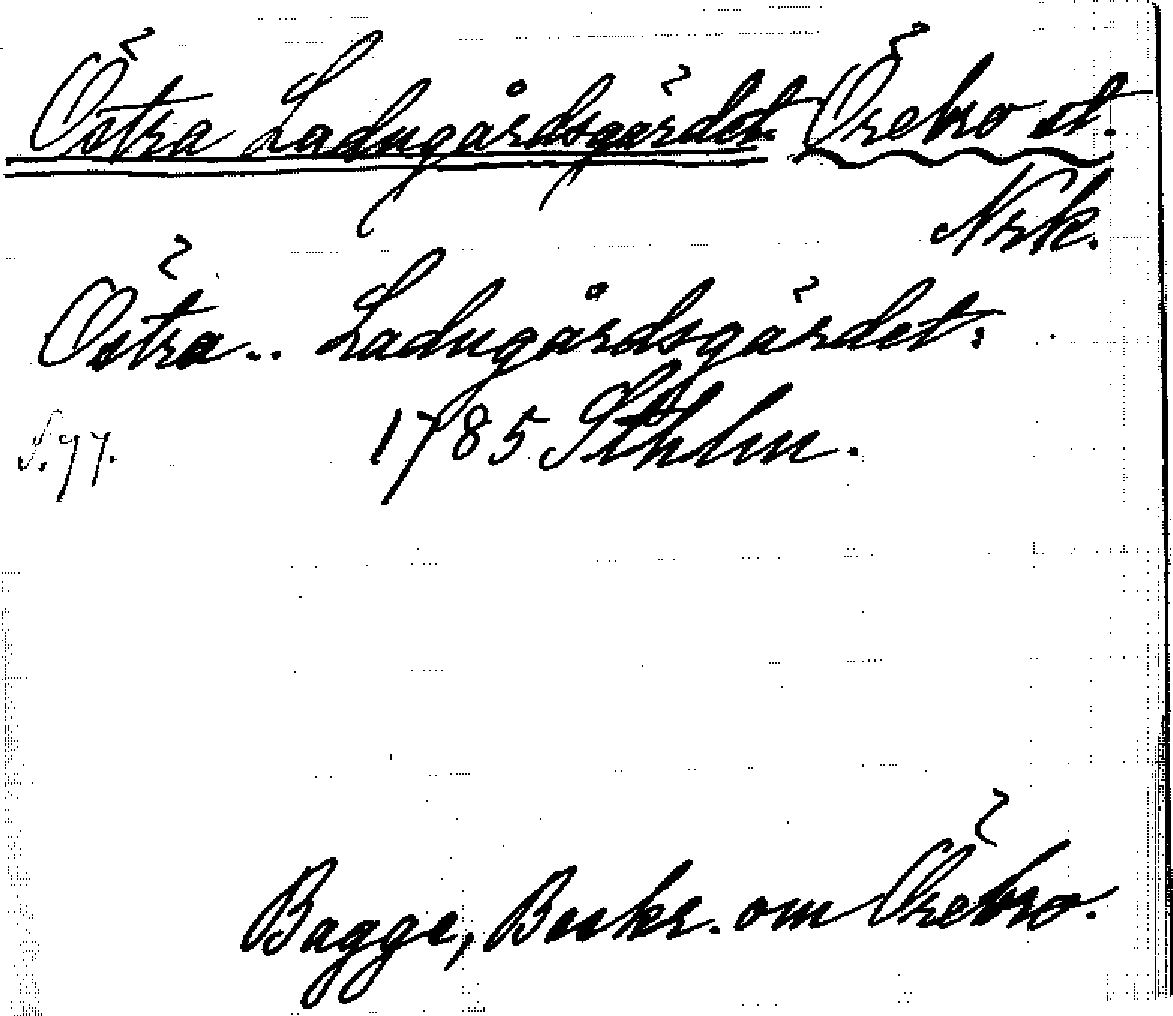 Östra Ladugårdsgärdet. Örebro st.
Nrk.
Östra.. Ladugårdsgärdet:
S. 97. 1785 Sthlm.
Bagge, Beskr. om Örebro.